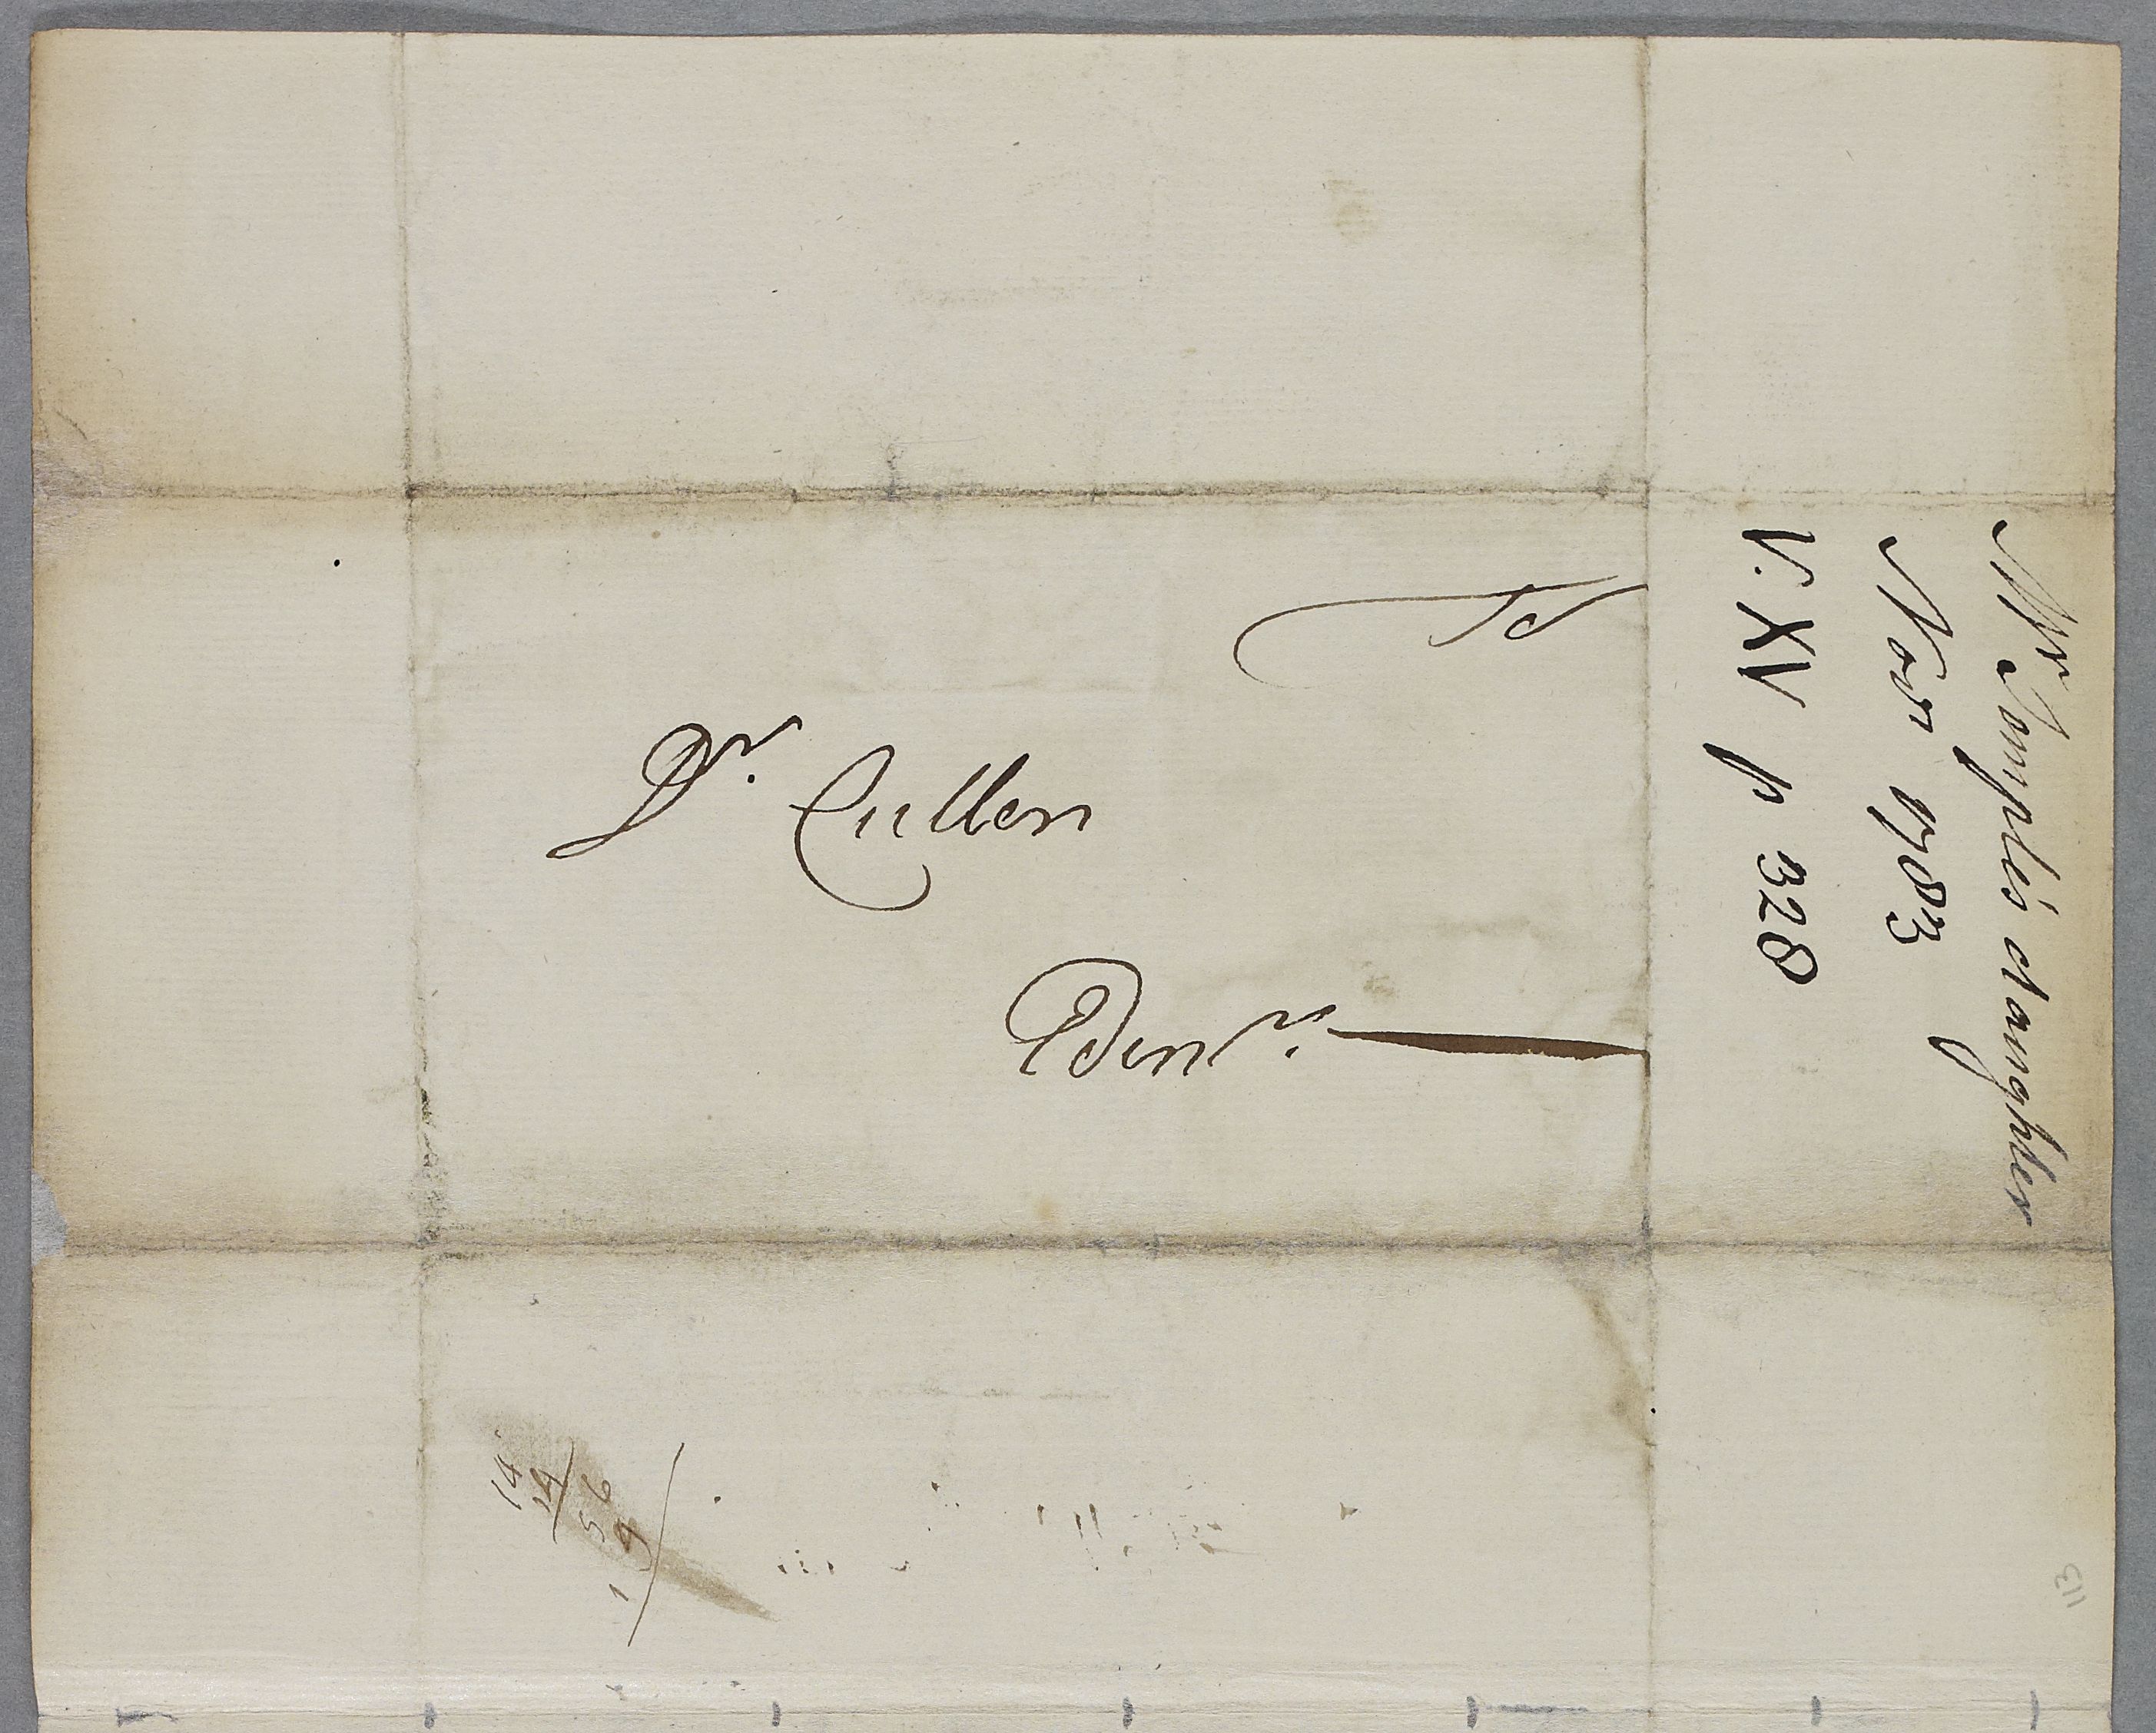 Dr. Cullen
Edenr.
Mr Dempsie's daughter
Novr 1783
V. XV p 328
14
14
56
9
113